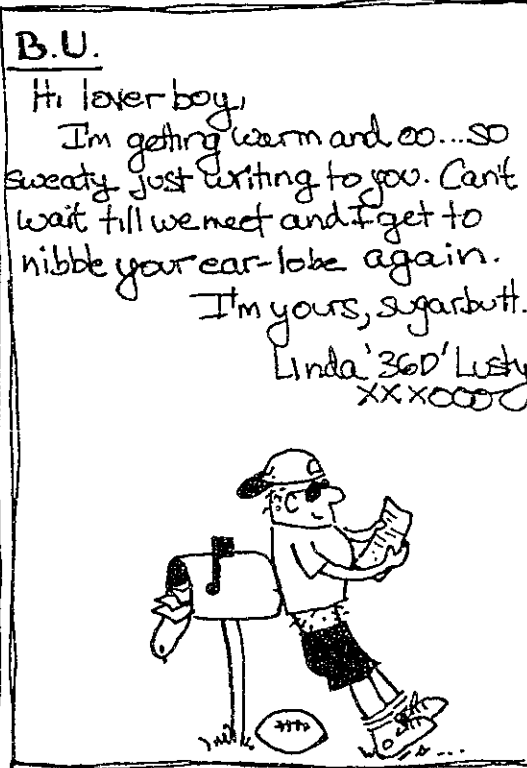 B.U.
Hi lover boy,
I'm getting warm and oo...so
sweaty just writing to you. Can't
wait till we meet and I get to
nibble your ear-lobe again.
I'm yours, sugarbutt.
Linda '36D' Lusty
xxxooo